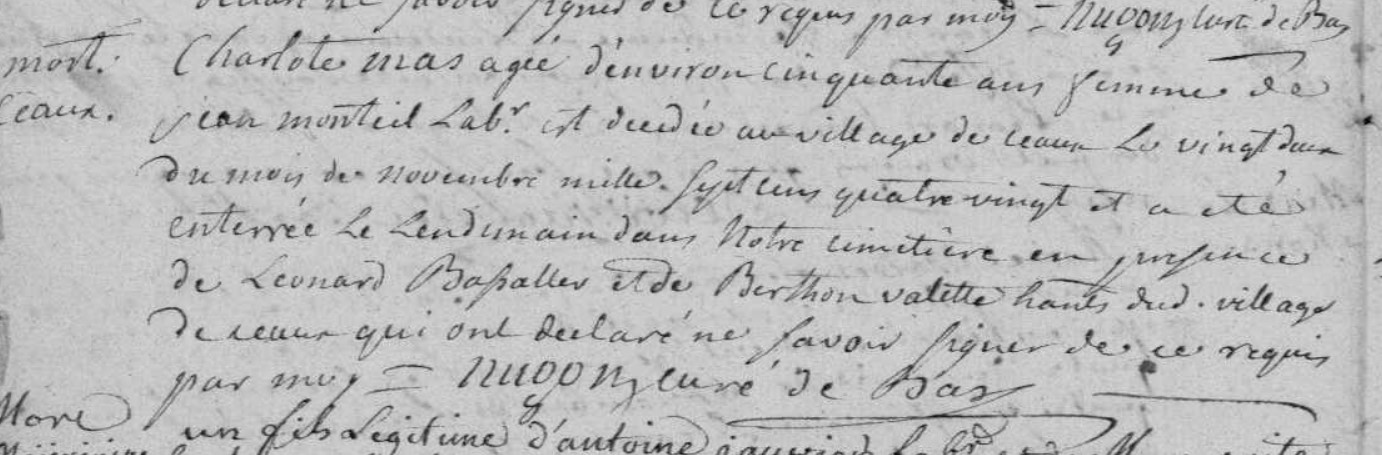 déclaré ne savoir signer de ce requis par moy = curé de Bas
mort. Charlote mas agée d'environ cinquante ans femme de
ceaux. jean monteil Labr. est decedée au village de ceaux Le vingt deux
du mois de novembre mille sept cens quatre vingt et a eté
enterrée Le Lendemain dans Notre cimetière en presence
de Leonard Bassaller et de Berthon valette hants dud. village
de ceaux qui ont declaré ne savoir signer de ce requis
par moy = curé de Bas
un fils Légitime d'antoine